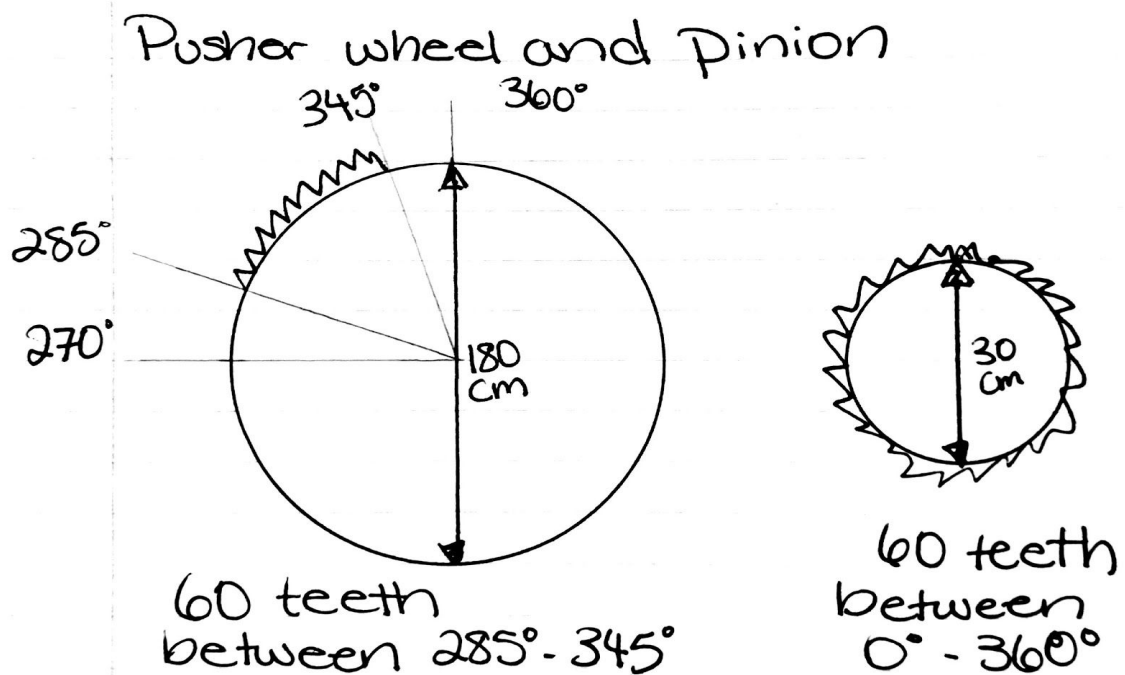 Pusher wheel and pinion
345°
360°
285°
270°
180
cm
30
cm
60 teeth
between 285° - 345°
60 teeth
between
0° - 360°